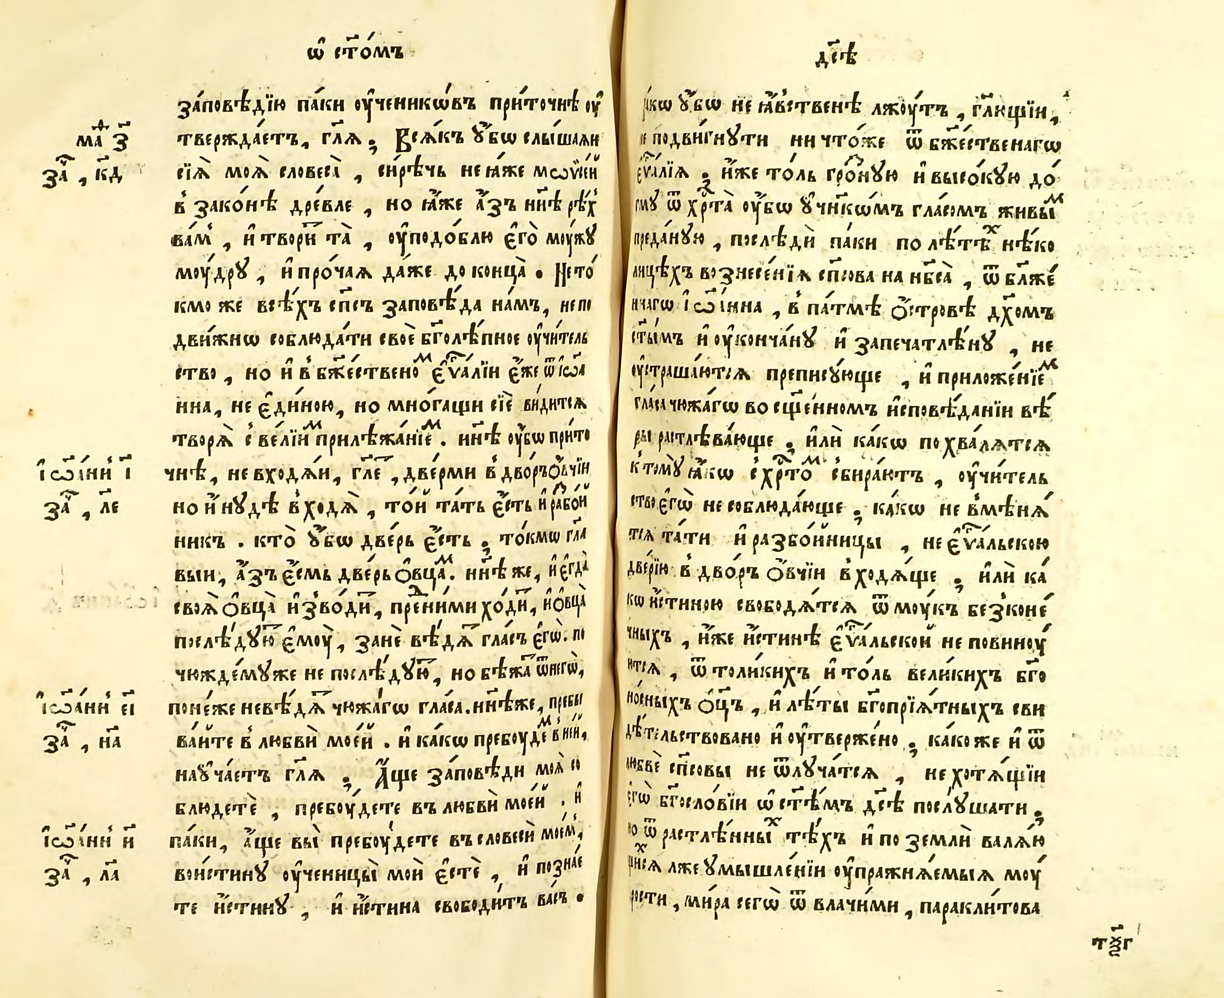 ѡ҆ ст҃о́мъ
за́повѣдїю па́ки оу҆ченикѡ́въ при́точнѣ оу҆
тверждае́тъ, гл҃ѧ; Всѧ́къ ᲂу҆́бѡ слы́шаѧи
сїѧ̀ моѧ̀ словеса̀, си́рѣчь не ꙗ҆́же мѡѷсе́й
в̾ зако́нѣ дре́вле, но ꙗ҆́же а҆́зъ нн҃ѣ рѣ́х
ва́м, и҆ твори́т та̀, оу҆подо́блю є҆го̀ мо́ужꙋ
мо́удрꙋ, и҆ про́чаѧ да́же до конца̀. Не то́
кмо же всѣ́хъ сп҃съ заповѣ́да на́мъ, непо
дви́жнѡ соблюда́ти своѐ бг҃олѣ́пное оу҆чи́тель
ство, но и҆ в̾ бж҃е́ствено ⷨ є҆ѵⷢ҇а́лїи є҆́же ѿ і҆ѡ́а
нна, не є҆ди́ною, но мно́гащи сїѐ ви́дитсѧ
творѧ̀ с̾ ве́лїи ⷨ прилѣжа́нїе ⷨ. нн҃ѣ ᲂу҆́бѡ при́то
чнѣ, не входѧ́й, гл҃е, две́рми в̾ дво́ръ ѻ҆́вчїи
но и҆ нꙋ́дѣ в̾ходѧ̀, то́й та́ть є҆́сть и҆ разбо́й
никъ. кто̀ ᲂу҆́бѡ две́рь є҆́сть; то́кмѡ гл҃а
выи, а҆́зъ є҆́смь две́рь ѻ҆вца́ ⷨ. нн҃ѣ же, и҆ є҆гда̀
своѧ̀ ѻ҆́вца̀ и҆зво́дит, пред̾ ни́ми хо́дит, и҆ ѻ҆́вца̀
послѣ́дꙋют є҆мо́у, занѐ вѣ́дѧт гла́съ є҆гѡ̀. по
чꙋжде́мꙋ же не послѣ́дꙋют, но бѣжа́т ѿ негѡ̀,
поне́же не вѣ́дѧт чюжа́гѡ гла́са. нн҃ѣ же, пребы
ва́йте в̾ любвѝ мое́й. и҆ ка́кѡ пребо́уде ⷨ в̾ не́й,
наꙋча́етъ гл҃ѧ; А҆́ще за́повѣди моѧ̀ со
блюдетѐ, пребо́удете въ любвѝ мое́й. и҆
па́ки, а҆́ще вы̀ пребо́удете въ словесѝ мое́м,
вои́стинꙋ оу҆ченицы̀ моѝ є҆стѐ, и҆ позна́е
те и҆́стинꙋ, и҆ и҆́стина свободи́тъ ва́съ.
маⷴ҇ з҃
за҃, к҃д
і҆ѡа́нн і҃
за҃, л҃е
і҆ѡа́нн є҃і
за҃, н҃а
і҆ѡа́нн и҃
за҃, л҃а
дс҃ѣ
ꙗ҆́кѡ ᲂу҆́бѡ не ꙗ҆́вственѣ лжо́утъ, гл҃ющїи,
не подви́гнꙋти ни что́же ѿ бж҃е́ственагѡ
є҆ѵⷢ҇а́лїѧ; и҆́же то́ль гро́мнꙋю и҆ высо́кꙋю до́
гмꙋ ѿ хрⷭ҇та̀ оу҆́бѡ ᲂу҆чн҃кѡ́мъ гла́сомъ живы́ ⷨ
преда́нꙋю, послѣдѝ па́ки по лѣ́тѣ ⷯ нѣ́ко
лицѣхъ вознесе́нїѧ сп҃сова на нб҃са̀, ѿ бл҃же́
ннагѡ і҆ѡа́нна, в̾ па́тмѣ ѻ҆́стровѣ дх҃омъ
ст҃ы́мъ и҆ оу҆конча́нꙋ и҆ запечатлѣ́нꙋ, не
оу҆страша́ютсѧ преписꙋ́юще, и҆ приложе́нїе ⷨ
гла́са чюжа́гѡ во сщ҃е́нномъ и҆сповѣ́данїи вѣ́
ры растлѣва́юще; и҆лѝ ка́кѡ похва́лѧтсѧ
к̾ томꙋ̀ ꙗ҆́кѡ с̾ хрⷭ҇то́ ⷨ сбира́ютъ, оу҆чи́тель
ство є҆гѡ̀ не соблюда́юще; ка́кѡ не в̾мѣнѧ́
тсѧ та́ти и҆ разбо́йницы, не є҆ѵⷢ҇а́льскою
две́рїю в̾ дво́ръ ѻ҆́вчїи в̾ходѧ́ще; и҆лѝ ка́
кѡ и҆́стиною свободѧ́тсѧ ѿ мо́укъ безконе́
чныхъ, и҆́же и҆́стинѣ є҆ѵⷢ҇а́льской не повино́у
ютсѧ, ѿ толи́кихъ и҆ то́ль вели́кихъ бг҃о
но́сныхъ ѻ҆ц҃ъ, и҆ лѣ́ты бг҃опрїѧ́тныхъ сви
дѣ́тельствовано и҆ оу҆твержѐно; ка́ко же и҆ ѿ
любвѐ сп҃совы не ѿлꙋча́тсѧ, не хотѧ́щїи
є҆гѡ̀ бг҃осло́вїи ѡ҆ ст҃ѣ́мъ дс҃ѣ послꙋ́шати;
но ѿ растлѣ́нны ⷯ тѣ́хъ и҆ по землѝ валѧ́ю
щи ⷯсѧ лжеꙋмышле́нїи оу҆пражнѧ́емыѧ моу́
дрости, ми́ра сегѡ̀ ѿ влачи́ми, пара́клитова
т҃ѯг